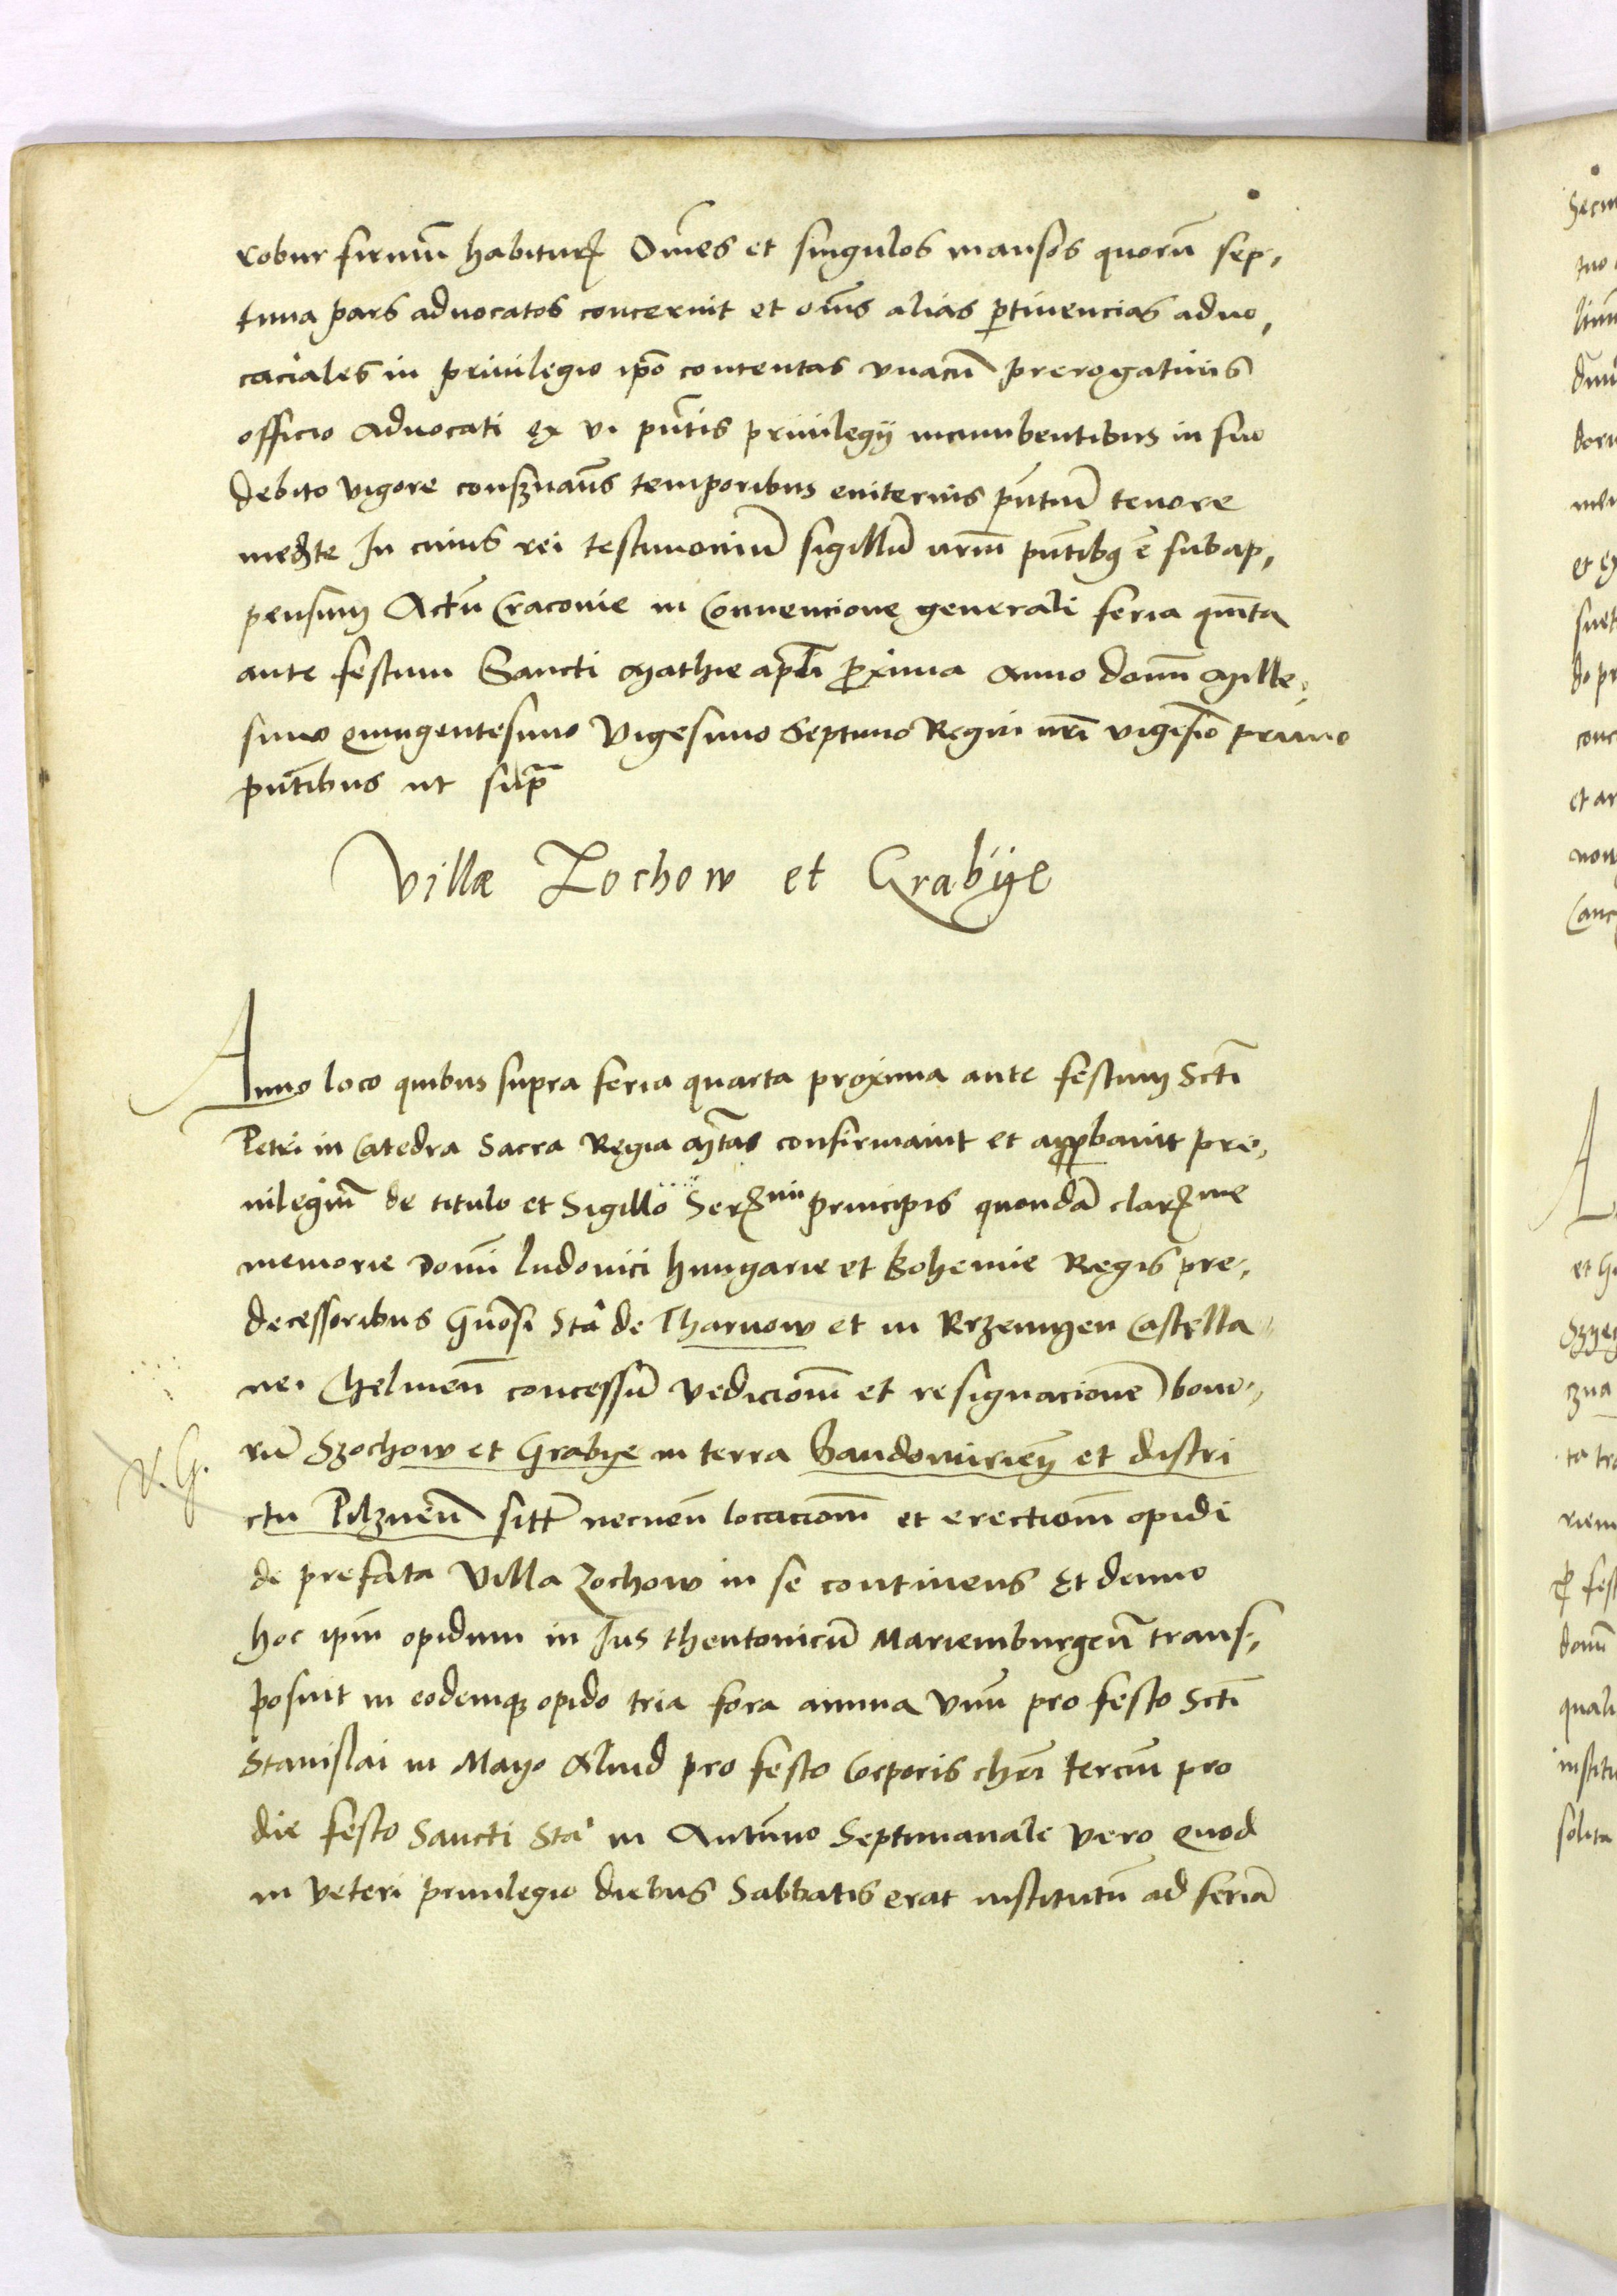 robur firmū habiturꝭ Om̄es et singulos mansos quorū sep,
tima pars aduocatos concernit et om̄s alias ꝑtinencias aduo,
caciales in priuilegio ip̄o contentas vnacū prerogatiuis
officio aduocati ex vi pn̄tis priuilegÿ incumbentibus in suo
debito vigore conseruan̄s temporibus euiternis pn̄tiū tenore
mediante In cuius rei testimoniū sigillū nrm̄ pn̄tibꝰ ē subap,
pensum Actū Cracouie in Conuencione generali feria quīta
ante festum Sancti Mathie apl̄i ꝓxima Anno domī Mille,
simo quingentesimo Vigesimo Septimo Regni nrī vigesīo primo
pn̄tibus ut supꝛa
Villæ Zochow et Grabÿe
Anno loco quibus supra feria quarta proxima ante festum Sctī
Petri in Catedra Sacra Regia Mtas confirmauit et approbauit pri,
uilegiū de titulo et Sigillo Serꝭmi principis quondā clarꝭme
memorie Domī Ludouici Hungarie et Bohemie Regis pre,
decessoribus Gn̄osi Sta de Tharnow et in Rzemyen Castella
nei Chelmen̄ concessū vēdicionē et resignacionē bono,
rū Szochow et Grabye in terra Sandomirien̄ et distri
V. G.
ctu Pilznen̄ sitt̄ necnen̄ locacionē et erectionē opidi
de prefata Villa Zochow in se continens Et denuo
hoc ipm̄ opidum in Jus theutonicū Mariemburgen̄ trans,
posuit in eodemqꝫ opido tria fora annua vnū pro festo Sctī
Stanislai in Mayo Aliud pro festo Corporis chrī terciū pro
die festo Sancti Sta in Autūno Septimanale vero quod
in veteri priuilegio diebus Sabbatis erat institutū ad feriā